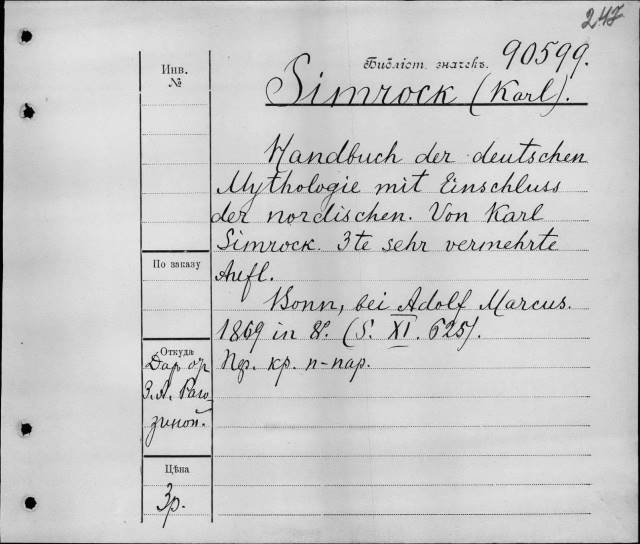 247
Библіот. значекъ. 90599.
Инв.
№
Simrock (Karl).
Handbuch der deutschen
Mythologie mit Einschluss
der nordischen. Von Karl
Simrock. 3te sehr vermehrte
Aufl.
Bonn, bei Adolf Marcus.
1869 in 8º. (S. XI. 625).
кр. п-пар.
По заказу
Откуда
Дар от
З. А. Раго-
зиной.
Цѣна
3р.